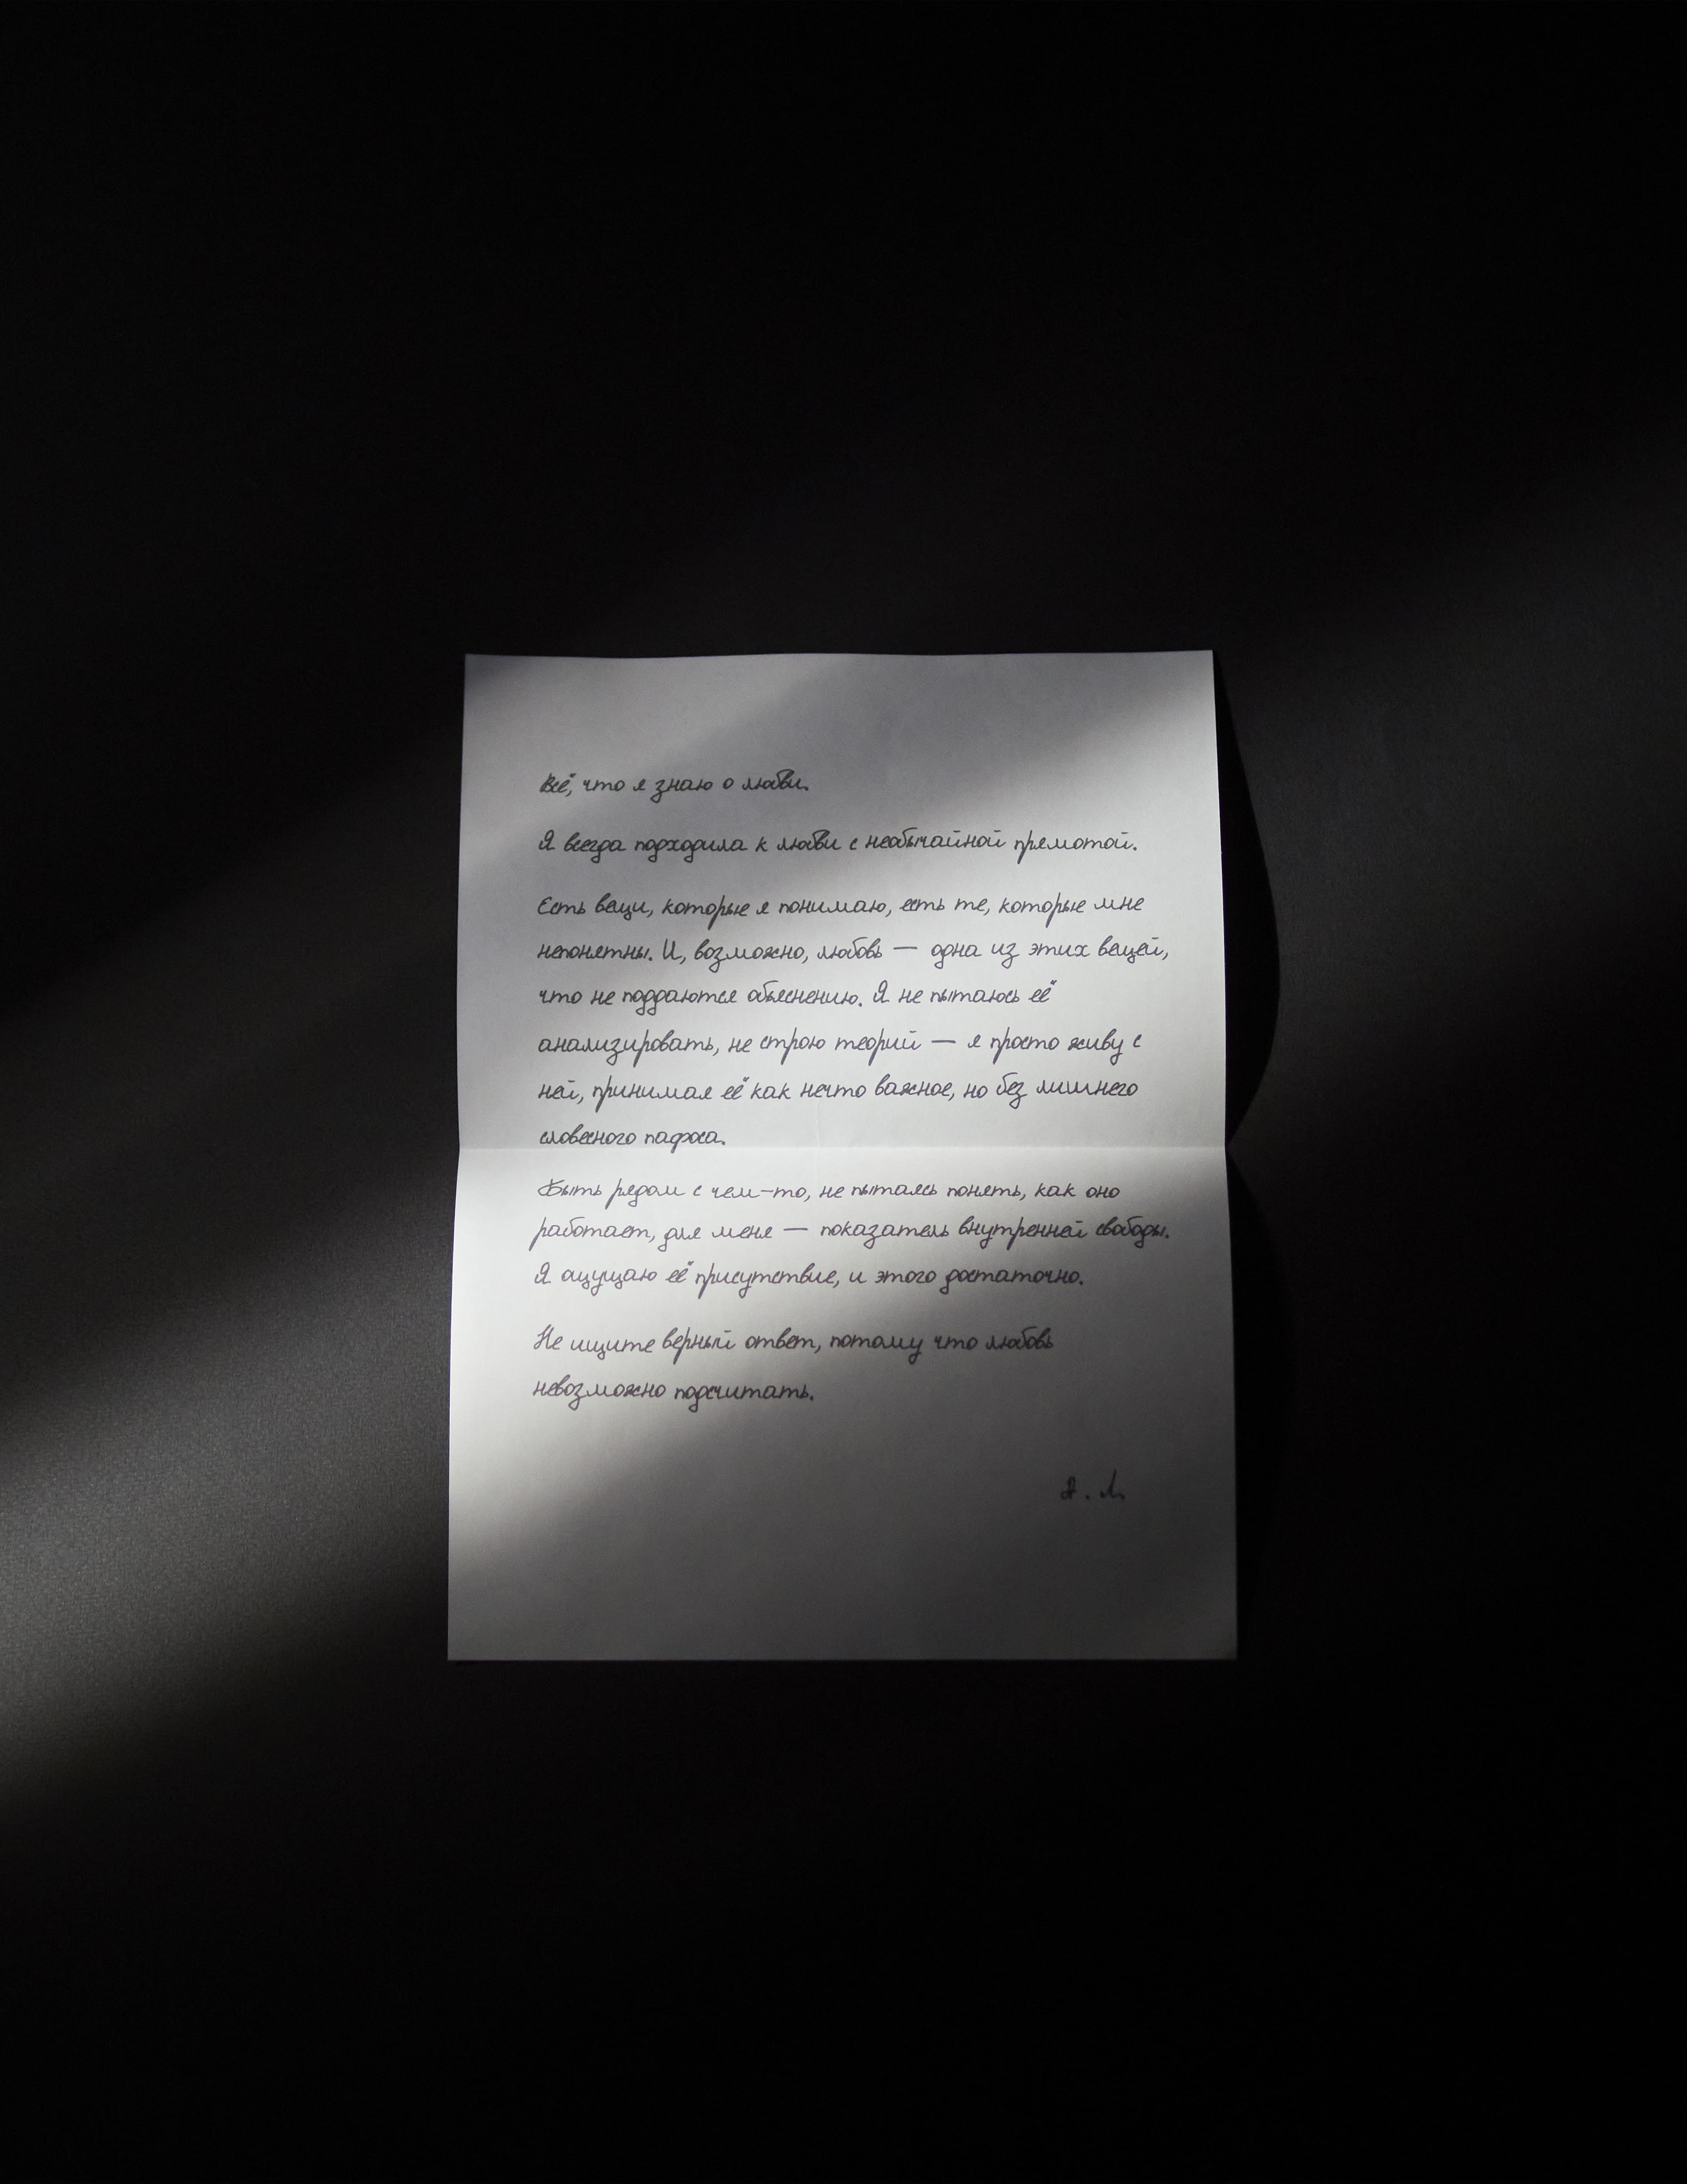 Всё, что я знаю о любви.
Я всегда подходила к любви с необычайной прямотой.
Есть вещи, которые я понимаю, есть те, которые мне
непонятны. И, возможно, любовь — одна из этих вещей,
что не поддаются объяснению. Я не пытаюсь её
анализировать, не строю теорий — я просто живу с
ней, принимая её как нечто важное, но без лишнего
словесного пафоса.
Быть рядом с чем-то, не пытаясь понять, как оно
работает, для меня — показатель внутренней свободы.
Я ощущаю её присутствие, и этого достаточно.
Не ищите верный ответ, потому что любовь
невозможно подсчитать.
Я. Л